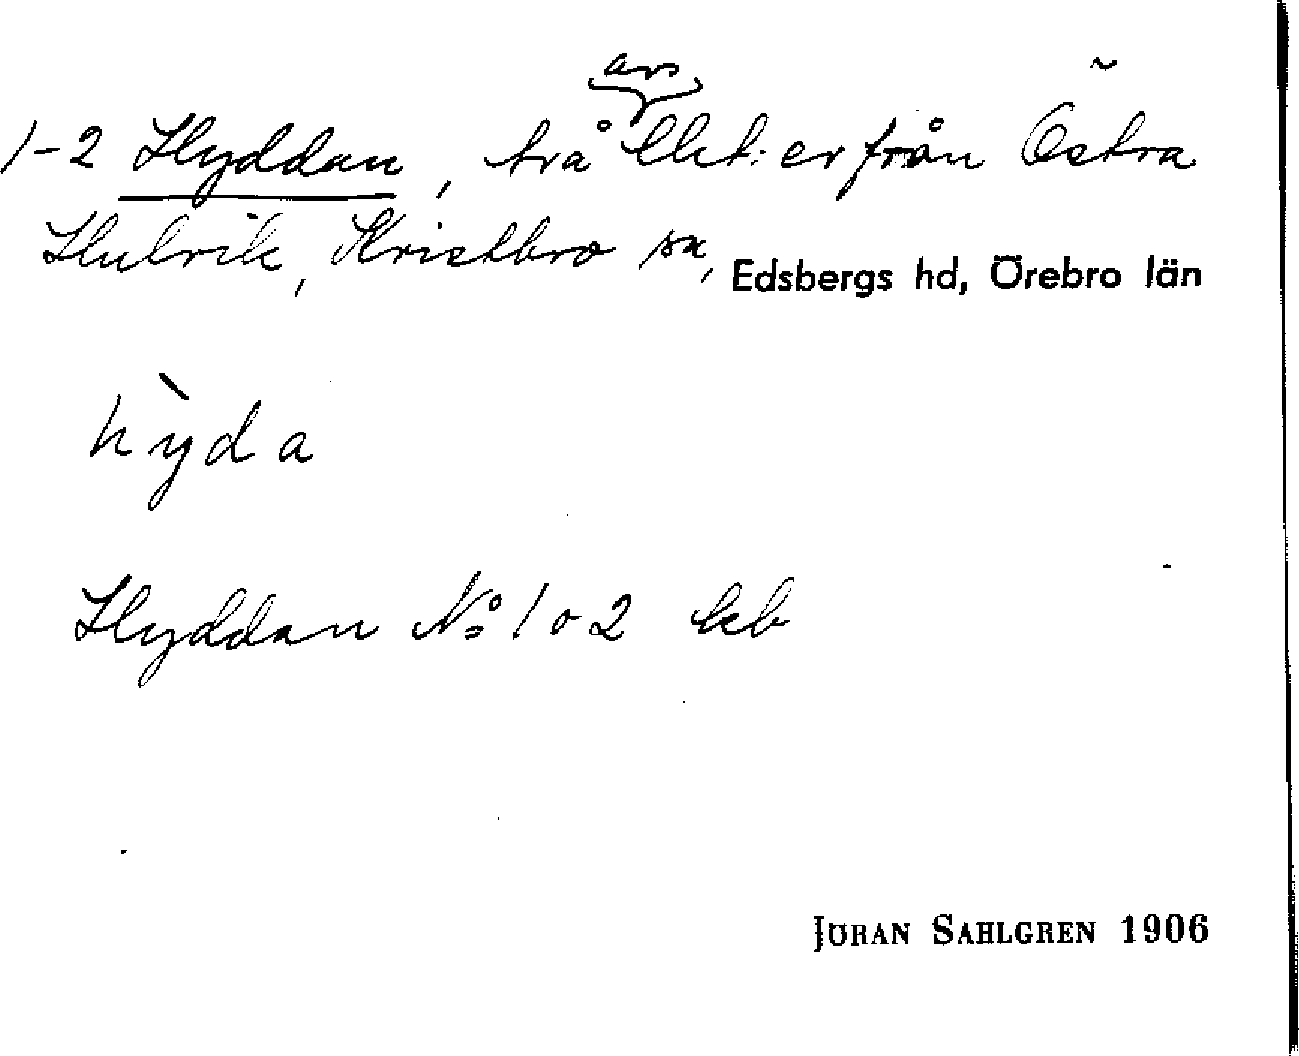 avs
1-2 Hyddan, två lht:er från Östra
Hulvik, Kristbro sn, Edsbergs hd, Örebro län
hỳda
Hyddan No 1 o 2 kb
JÖRAN SAHLGREN 1906